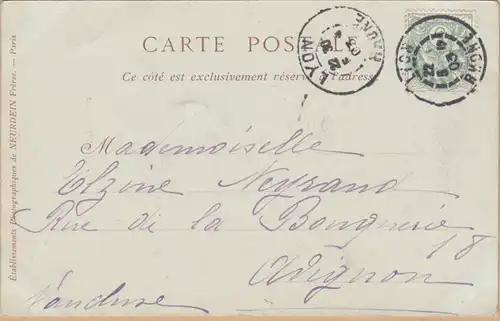 CARTE POSTALE
Ce côté est exclusivement réservé à l'adresse
Mademoiselle
Elzine Neyrand
Rue de la Bouquerie 18
Avignon
Vaucluse
Établissements photographiques de NEURDEIN Frères. — Paris
LYON RHONE
LYON RHONE